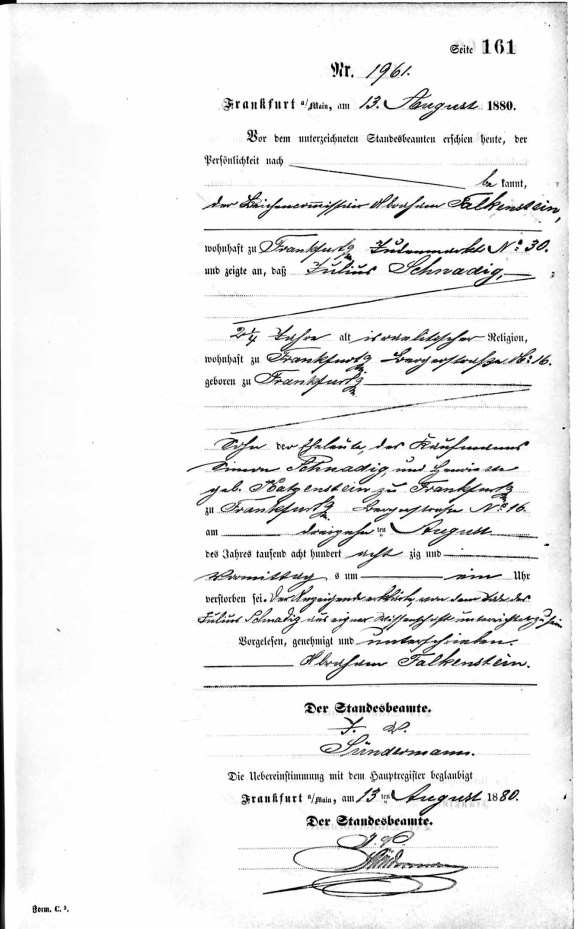 Seite 161
Nr. 1961.
Frankfurt a/Main, am 13. August 1880.
Vor dem unterzeichneten Standesbeamten erschien heute, der
Persönlichkeit nach
be kannt,
der Leichencommissär Abraham Falkenstein,
wohnhaft zu Frankfurt Judenmarkt No. 30.
und zeigte an, daß Julius Schnadig,
2 1/4 Jahre alt israelitischer Religion,
wohnhaft zu Frankfurt Bergerstraße No. 16.
geboren zu Frankfurt
Sohn der Eheleute, des Kaufmanns
Simon Schnadig, und
geb. Katzenstein zu Frankfurt
zu Frankfurt Bergerstraße No. 16.
am dreizehn ten August
des Jahres tausend acht hundert acht zig und
Vormittag s um ein Uhr
verstorben sei. Der Anzeigende erklärte, von dem Tode des
Julius Schnadig aus eigner Wissenschaft unterrichtet zu sein
Vorgelesen, genehmigt und unterschrieben.
Abraham Falkenstein.
Der Standesbeamte.
J. V.
Sündermann.
Die Uebereinstimmung mit dem Hauptregister beglaubigt
Frankfurt a/Main, am 13 ten August 1880.
Der Standesbeamte.
J. V.
Sündermann
Form. C. 2.